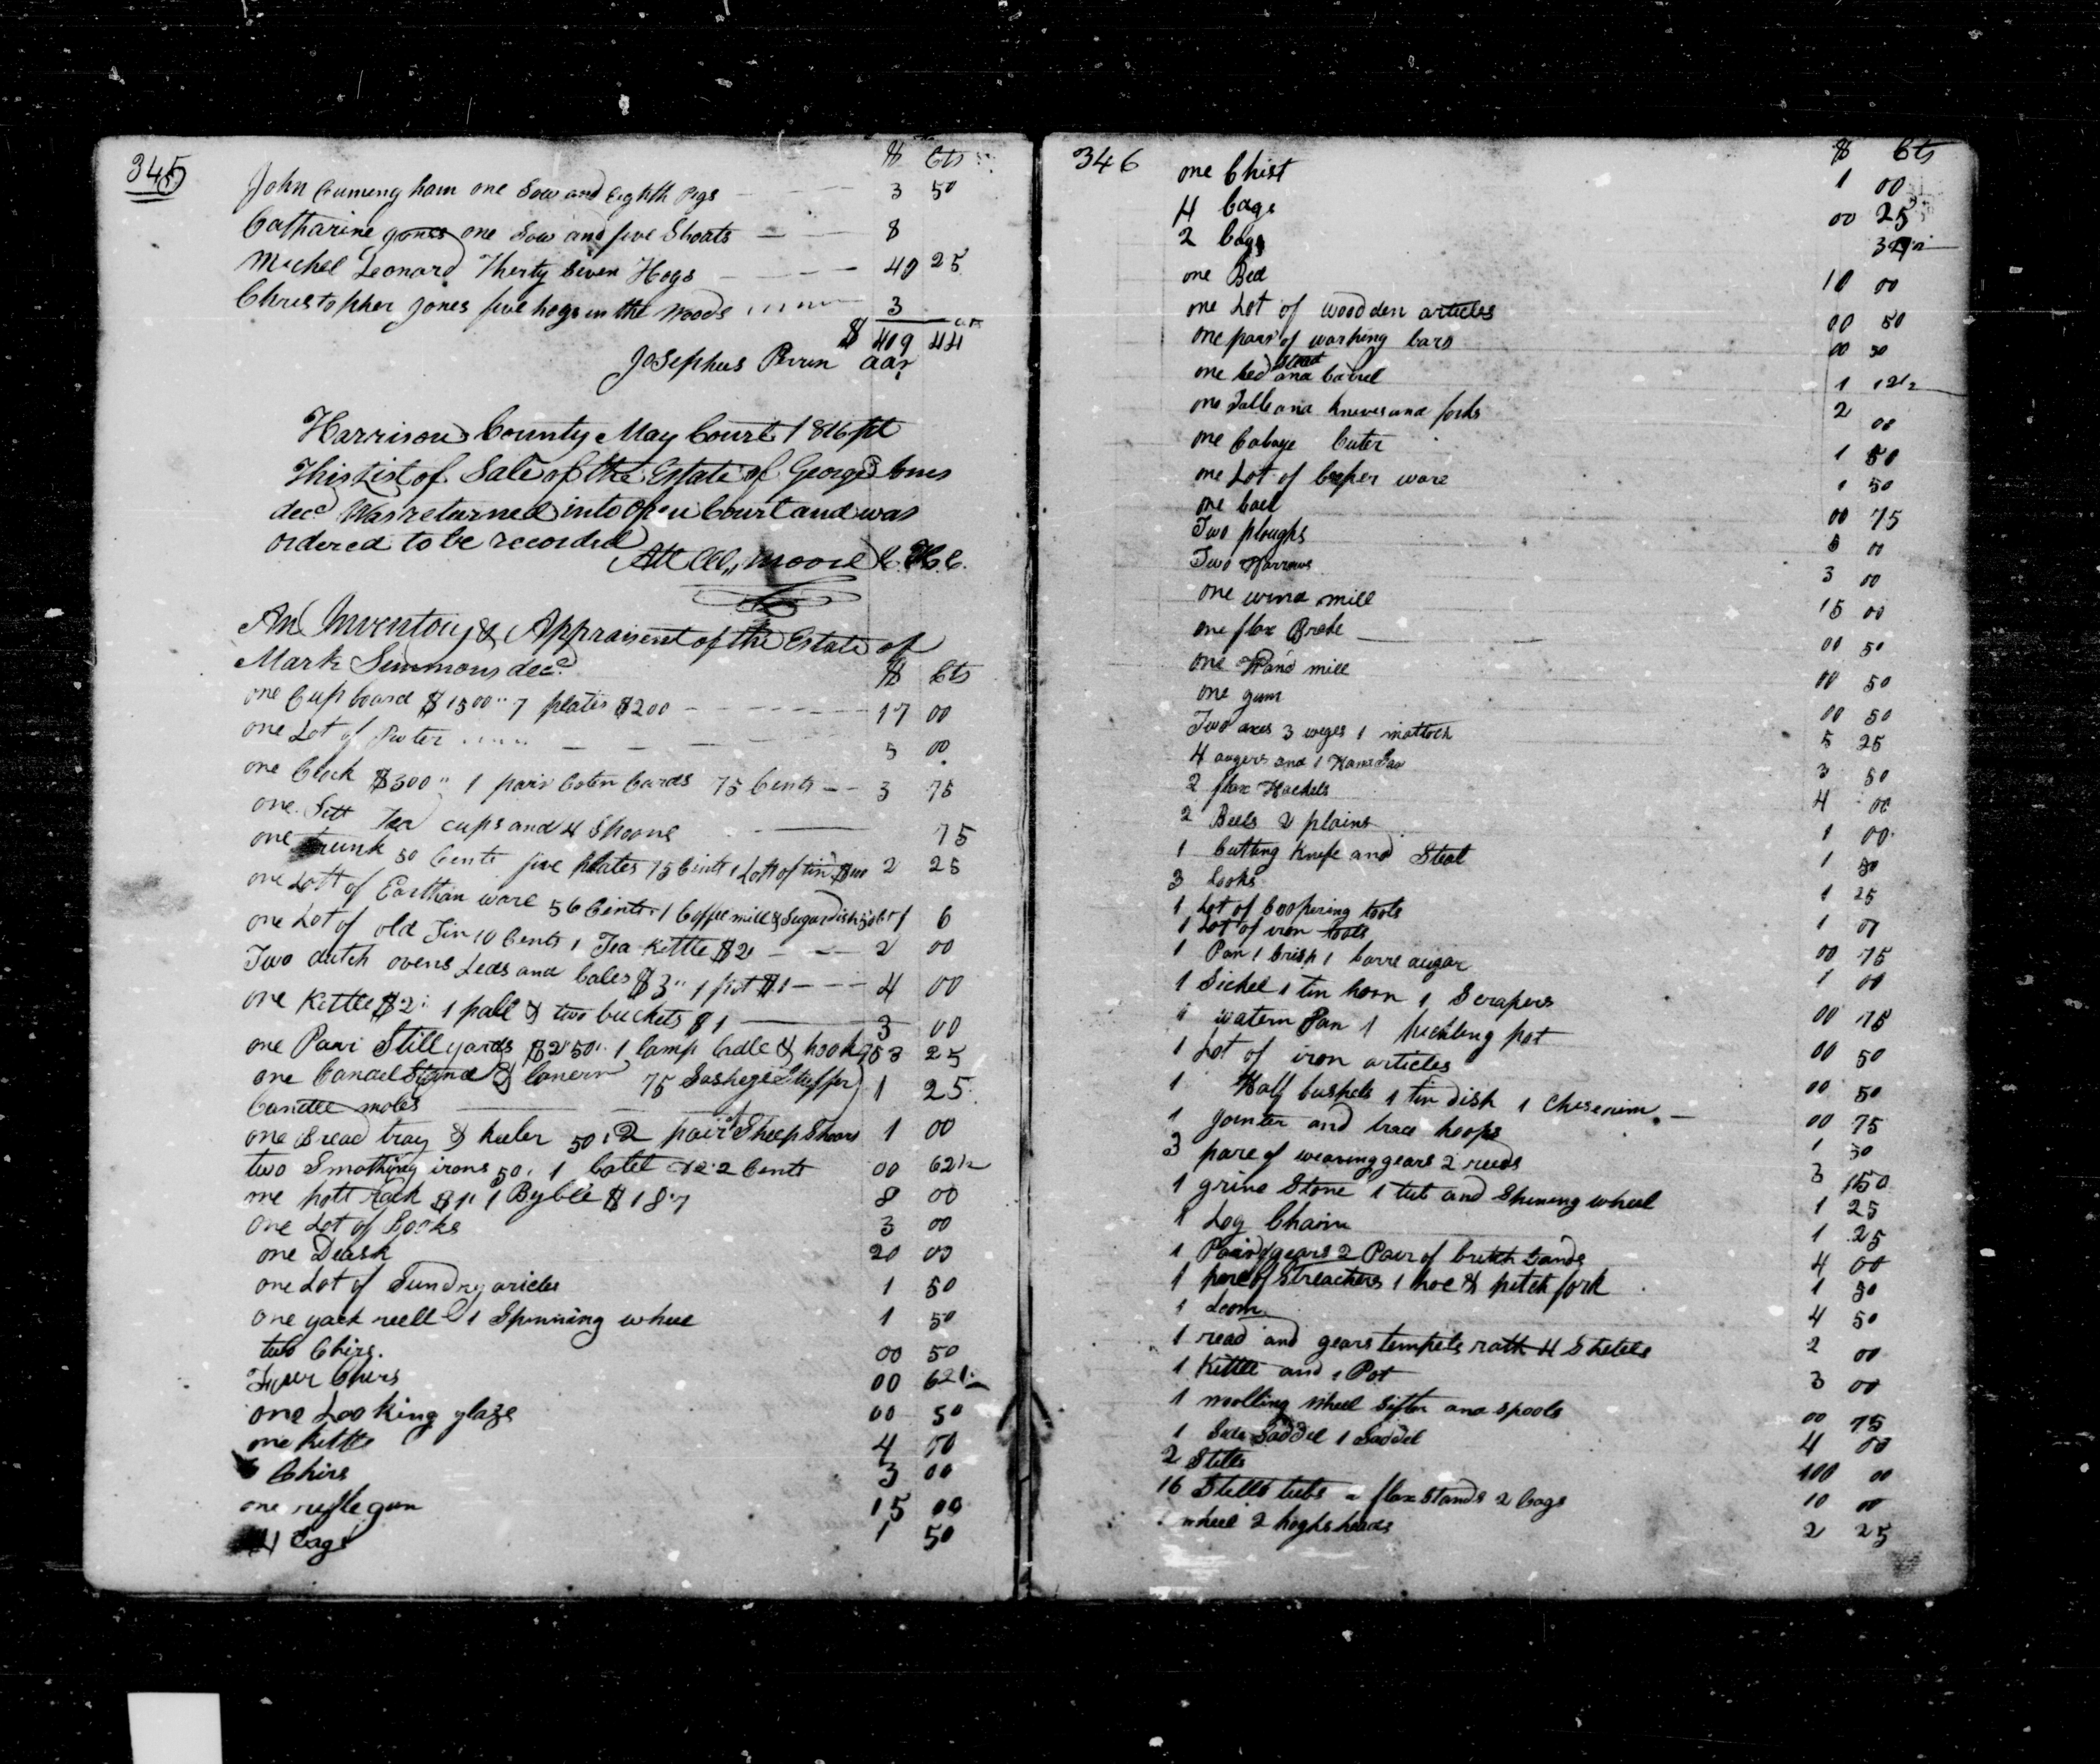 345
$ Cts
John Cumengham one Sow and Eighth Pigs 3 50
Catharine Jones one Sow and five Shoats 8
Michel Leonard Therty Seven Hogs 40 25
Christopher Jones five hogs in the Woods 3
$ 409 44
Josephus Perrin adr
Harrison County May Court 1816 Sct
This List of Sale of the Estate of George Jones
decd Was returned into Open Court and was
ordered to be recorded
Att Moore C.H.C.
An Inventory & Appraisent of the Estate of
Mark Simmons decd
$ Cts
one Cupboard $1500 " 7 plates $200 17 00
one Lot of Puter 5 00
one Clock $300 " 1 pair Coten Cards 75 Cents 3 75
one Sett Tea cups and 4 Spoons 75
one trunk 50 Cents five plates 75 Cents 1 Lott of tin $100 2 25
one Lott of Earthan ware 56 Cents 1 Coffee mill & Sugar dish 50 Ct 1 6
one Lot of old Tin 10 Cents 1 Tea Kettle $2 2 00
Two dutch ovens Leds and bales $3 " 1 pot $1 4 00
one Kettle $2 " 1 pale & two buckets $1 3 00
one Pair Still yards $2 50 " 1 lamp ladle & hook 75 3 25
one Candel Stand & Canern 75 Sashege Stuffer 1 25
Candle moles
one Bread tray & keeler 50 " 2 pair Sheep Shears 1 00
two Smothing irons 50 " 1 12 2 Cents 00 62 1/2
one pott rack $1 " 1 Byble $1 87 8 00
one Lot of Books 3 00
one Desk 20 00
one Lot of Sundry aricles 1 50
one yack reell 1 Spinning wheel 1 50
two Chirs. 00 50
Four Chers 00 62 1/2
one Looking glaze 00 50
one kettle 4 00
6 Chirs 3 00
one riffle gun 15 00
4 bags 1 50
346
$ Cts
one Chist 1 00
4 bags 00 25
2 bags
one Bed 10 00
one Lot of woodden articles 00 50
one pair of warping bars 00 50
one bed stead and barrel 1 12 1/2
one Table and knives and forks 2 00
one Cabage Cuter 1 50
one Lot of Cooper ware 1 50
one 00 75
Two ploughs 5 00
Two Harrows 3 00
one wind mill 15 00
one flax Brake 00 50
one Hand mill 00 50
one gum 00 50
Two axes 3 weges 1 mattock 5 25
4 augers and 1 Hand Saw 3 50
2 flax Hackels 4 00
2 Bells 2 plains 1 00
1 Cutting Knife and Steal 1 50
3 1 25
1 Lot of Coopering tools 1 00
1 Lot of iron tools 00 75
1 Pan 1 1 Barre augar 1 00
1 Sickel 1 tin horn 1 Scrapers 00 75
1 watern Pan 1 pot 00 50
1 Lot of iron articles 00 50
1 Half bushels 1 tin dish 1 00 75
1 Jointer and trace hoops 1 50
3 pare of weaving gears 2 reeds 3 50
1 grine Stone 1 tub and Spinning wheel 1 25
1 Log Chain 1 25
1 Pair of gears 2 Pair of britch bands 4 00
1 pare of Streachers 1 hoe & pitch fork 1 50
1 Loom 4 50
1 read and gears tempels rath 4 Shetels 2 00
1 Kettle and 1 Pot 3 00
1 woolling wheel Sifter and spools 00 75
1 Side Saddel 1 Saddel 4 00
2 Stills 100 00
16 Stills tubs 2 flax stands 2 bags 10 00
1 wheel 2 hoghsheads 2 25